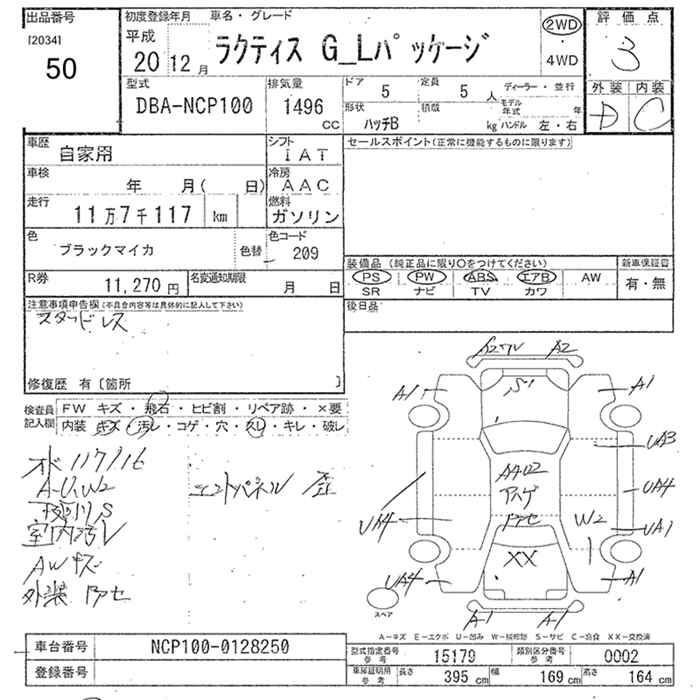 出品番号
[2034]
50
初度登録年月
平成
20 12月
車名・グレード
ラクティス G_Lパッケージ
2WD
・
4WD
評価点
3
外装 内装
D C
型式
DBA-NCP100
排気量
1496
CC
ドア 5
定員 5 人
形状 ハッチB
積載 kg
ディーラー・並行
モデル年式 年
ハンドル 左・右
車歴
自家用
シフト
IAT
車検
年 月( 日)
冷房
AAC
走行
11万7千117 km
燃料
ガソリン
色
ブラックマイカ
色替
色コード
209
R券
11,270 円
名変通知期限
月 日
セールスポイント(正常に機能するものに限ります)
装備品(純正品に限り○をつけてください)
PS PW ABS エアB AW
SR ナビ TV カワ
新車保証書
有・無
後日品
注意事項申告欄(不具合内容等は具体的に記入して下さい)
スタッドレス
修復歴 有〔箇所 〕
検査員記入欄
FW キズ・飛石・ヒビ割・リペア跡・×要
内装 キズ・汚レ・コゲ・穴・スレ・キレ・破レ
117116
A-U、W2
室内汚レ
AWキズ
外装
パネル 歪
A2 A1 A1
UA3
UA4
UA1
W2
A1
UA4
UA4
S1
XX
A-1 A-1
スペア
A-キズ E-エクボ U-凹み W-補修跡 S-サビ C-腐食 XX-交換済
車台番号 NCP100-0128250
登録番号
型式指定番号 参考 15179
類別区分番号 参考 0002
車庫証明用 参考 長さ 395 cm 幅 169 cm 高さ 164 cm